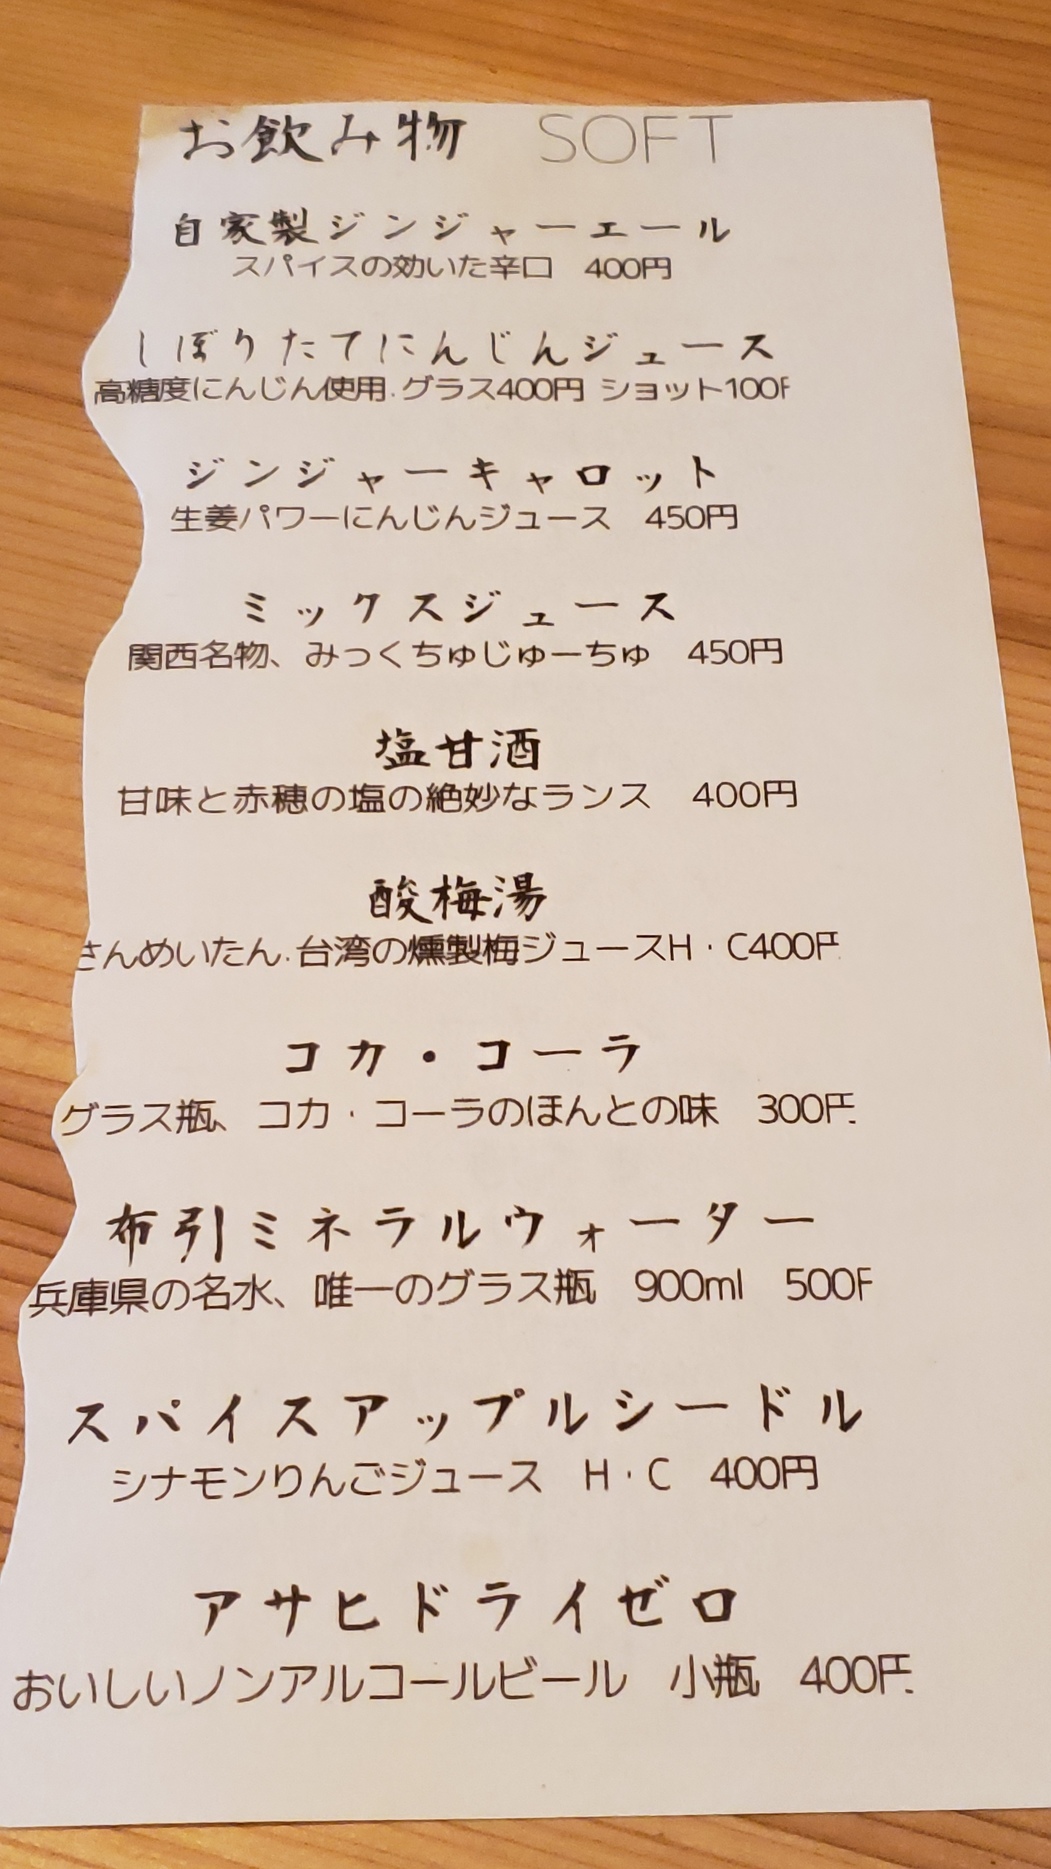 お飲み物 SOFT
自家製ジンジャーエール
スパイスの効いた辛口 400円
しぼりたてにんじんジュース
高糖度にんじん使用.グラス400円 ショット100F
ジンジャーキャロット
生姜パワーにんじんジュース 450円
ミックスジュース
関西名物、みっくちゅじゅーちゅ 450円
塩甘酒
甘味と赤穂の塩の絶妙なランス 400円
酸梅湯
さんめいたん.台湾の燻製梅ジュースH・C400円
コカ・コーラ
グラス瓶、コカ・コーラのほんとの味 300円
布引ミネラルウォーター
兵庫県の名水、唯一のグラス瓶 900ml 500F
スパイスアップルシードル
シナモンりんごジュース H・C 400円
アサヒドライゼロ
おいしいノンアルコールビール 小瓶 400円